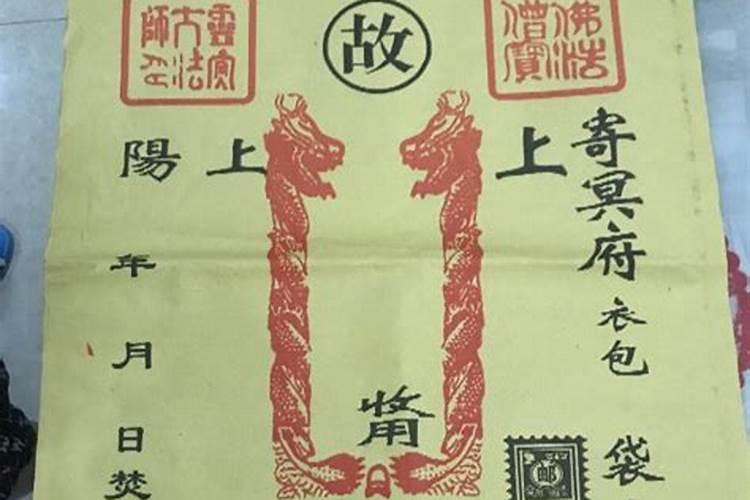 佛法
僧寶
故
靈寶
大法
師印
寄冥府衣包袋
上
收用
上
陽年月日焚
邮